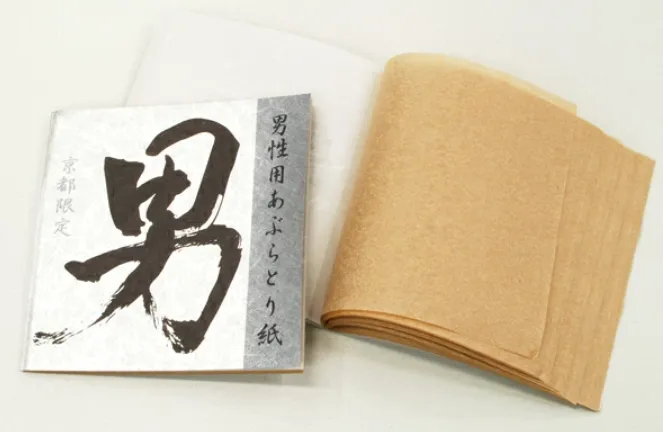 男性用あぶらとり紙
男
京都限定